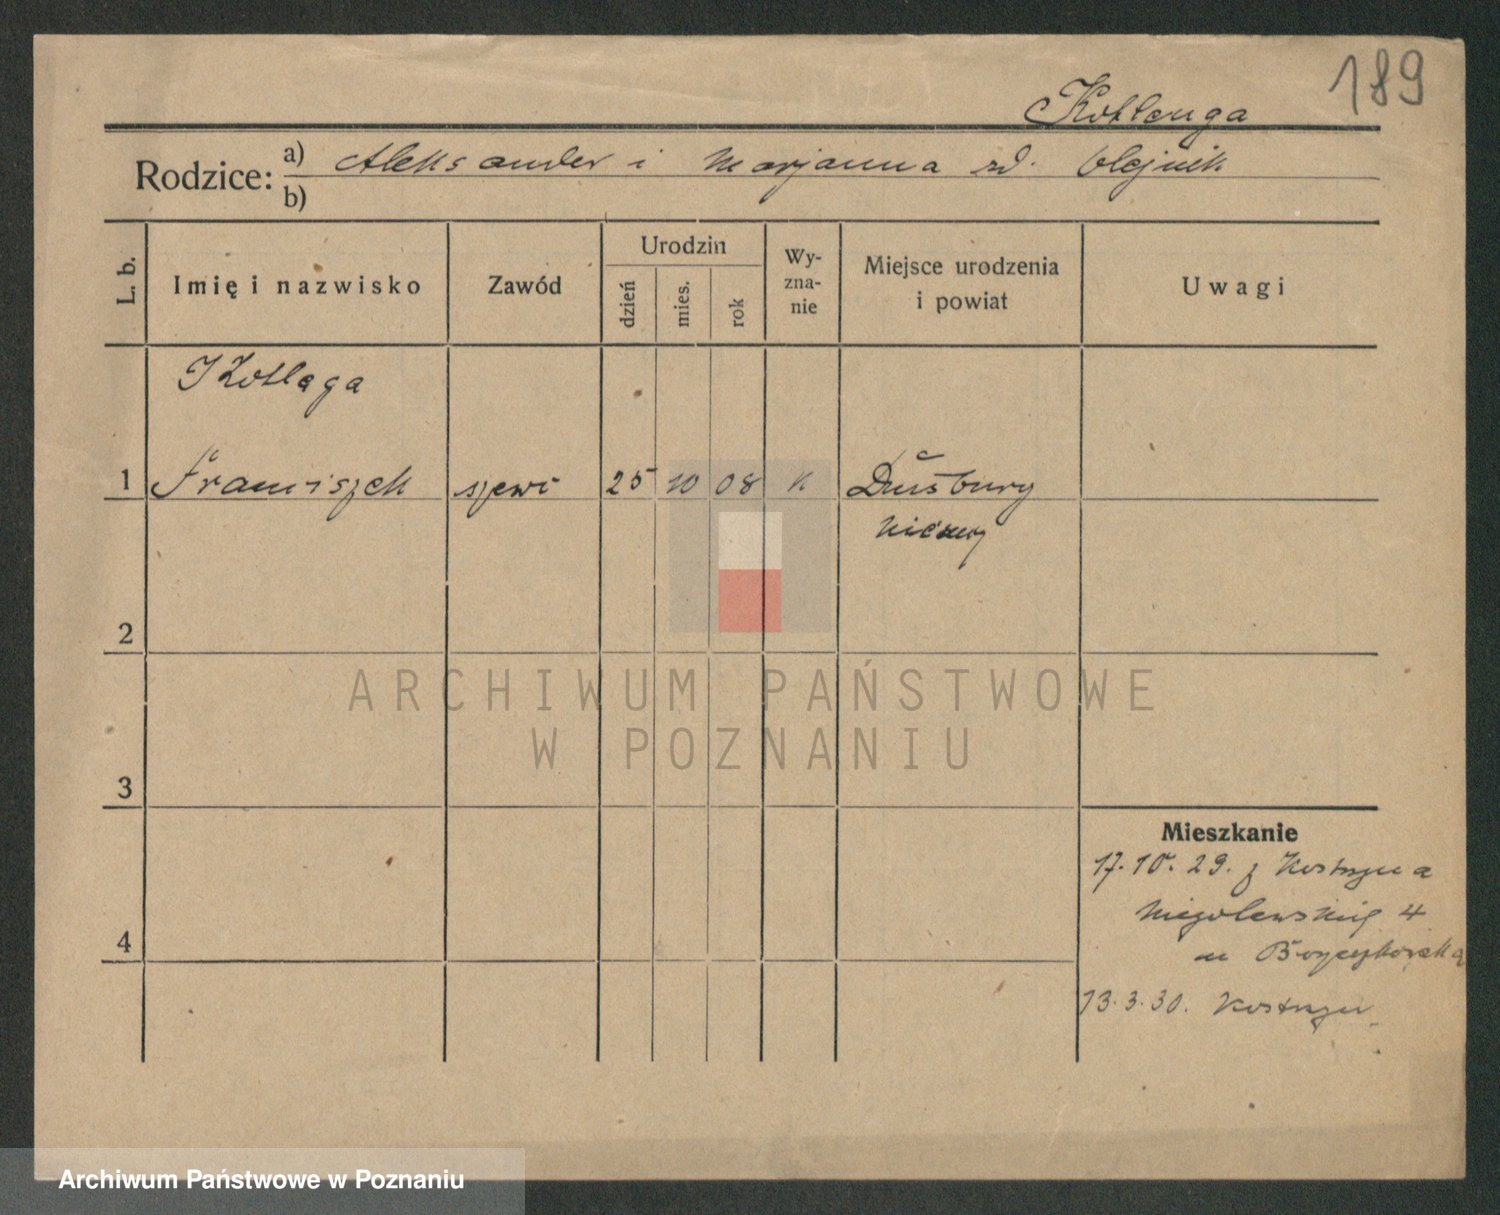 189
Kotlenga
Rodzice: a) Aleksander i Marjanna zd. Olejnik
b)
L. b.
Imię i nazwisko
Zawód
Urodzin
dzień
mies.
rok
Wy-
zna-
nie
Miejsce urodzenia
i powiat
Uwagi
Kotlęga
1 Franciszek szewc 25 10 08 k Duisburg
Niemcy
2
3
4
Mieszkanie
17.10.29. z Kostrzyna
Niegolewskich 4
u
13.3.30. Kostrzyn
ARCHIWUM PAŃSTWOWE
W POZNANIU
Archiwum Państwowe w Poznaniu